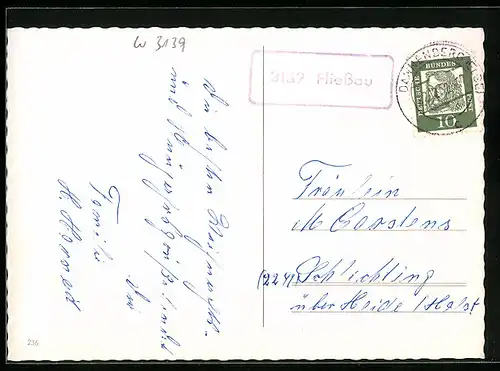 W 3139
3139 Fließau
DANNENBERG
DEUTSCHE BUNDESPOST
10
Die besten Weihnachts-
und Neujahrsgrüße sendet
Ihr
Familie
H.
Fräulein
M Carstens
(2241) Schlichting
über Heide / Holst
236